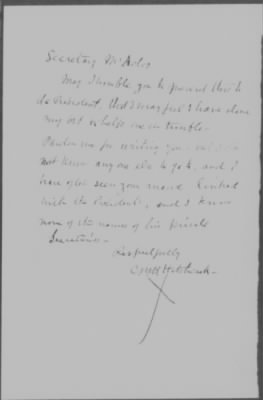 Secretary McAdoo
May I trouble you to present this to
the President, that I may feel I have done
my bit to help one in trouble -
Pardon me for writing you - but I do
not know anyone else to go to. and I
have often seen your name
with the President, and I know
none of the names of his private
Secretaries -
Respectfully